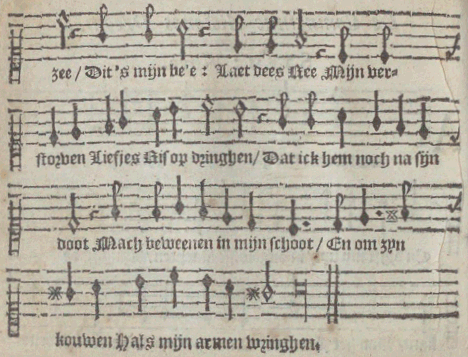 zee / Dit's mijn be'e : Laet dees Ree Mijn ver-
storven Liefjes Lijf op dringhen / Dat ick hem noch na sijn
doot Mach beweenen in mijn schoot / En om zyn
kouwen Hals mijn armen wringhen.